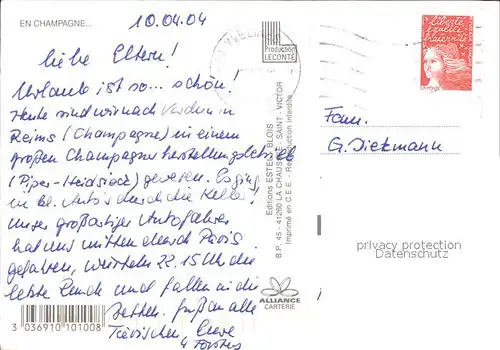 EN CHAMPAGNE...
10.04.04
Liebe Eltern!
Urlaub ist so... schön!
Heute sind wir nach Verdun in
Reims (Champagne) in einem
großen Champagner herstellungsbetrieb
(Piper-Heidsieck) gewesen. Es ging
in kl. Autos durch die Keller!
Unser großartiger Autofahrer
hat uns mitten durch Paris
gefahren, wir 22.15 Uhr die
letzte Runde und fallen in die
Betten. Grüßen alle
Eure
Production
LECONTE
Editions ESTEL - BLOIS
B.P. 45 - 41260 LA CHAUSSÉE - SAINT - VICTOR
Imprimé en C.E.E. - Reproduction interdite
ALLIANCE
CARTERIE
3 036910 101008
Liberté
égalité
fraternité
LA POSTE
Fam.
G. Dietmann
privacy protection
Datenschutz